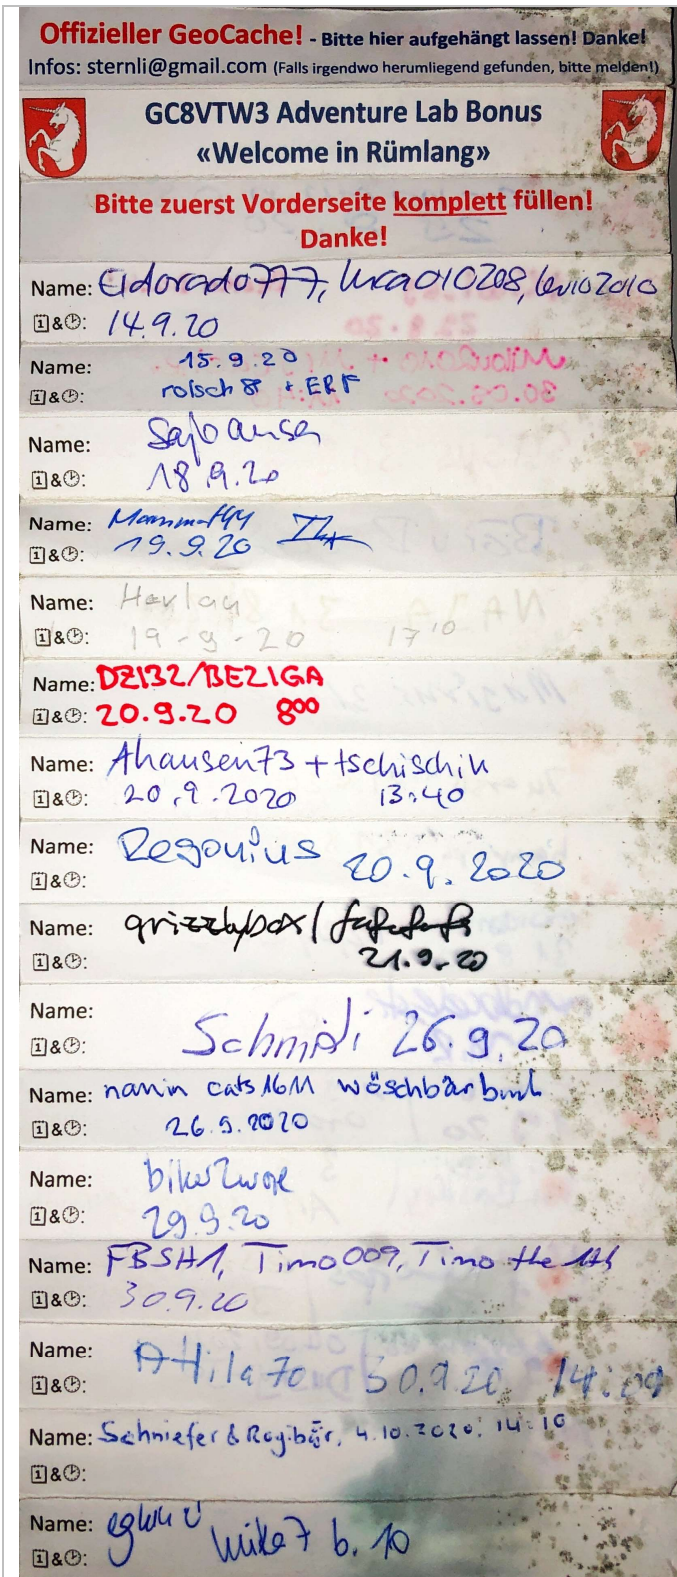 Offizieller GeoCache! - Bitte hier aufgehängt lassen! Danke!
Infos: sternli@gmail.com (Falls irgendwo herumliegend gefunden, bitte melden!)
GC8VTW3 Adventure Lab Bonus
«Welcome in Rümlang»
Bitte zuerst Vorderseite komplett füllen!
Danke!
Name: Eldorado777, luca010208, levio2010
&: 14.9.20
Name: 15.9.20
&: rolsch8 + ERF
Name:
&: 18.9.20
Name: Mammut44
&: 19.9.20
Name:
&: 19-9-20 17 10
Name: DZ132/BEZIGA
&: 20.9.20 8 00
Name: Ahausen73 + tschischih
&: 20.9.2020 13:40
Name: Regonius 20.9.2020
&:
Name: grizzlybox/
&: 21.9.20
Name:
&: Schmidi 26.9.20
Name: nanin cats16M
&: 26.9.2020
Name:
&: 29.9.20
Name: FBSH1, Timo009, Timo the
&: 30.9.20
Name: Attila70 30.9.20 14:09
&:
Name: Schniefer & Rogibär, 4.10.2020, 14:10
&:
Name: mike7 6. 10
&: